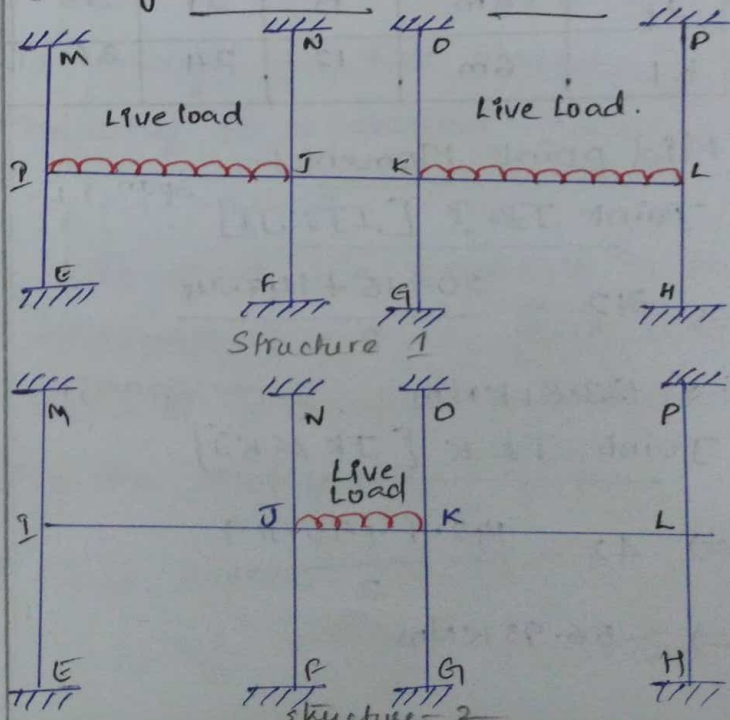 M N O P
Live load Live Load.
I J K L
E F G H
Structure 1
M N O P
Live
Load
I J K L
E F G H
Structure - 2